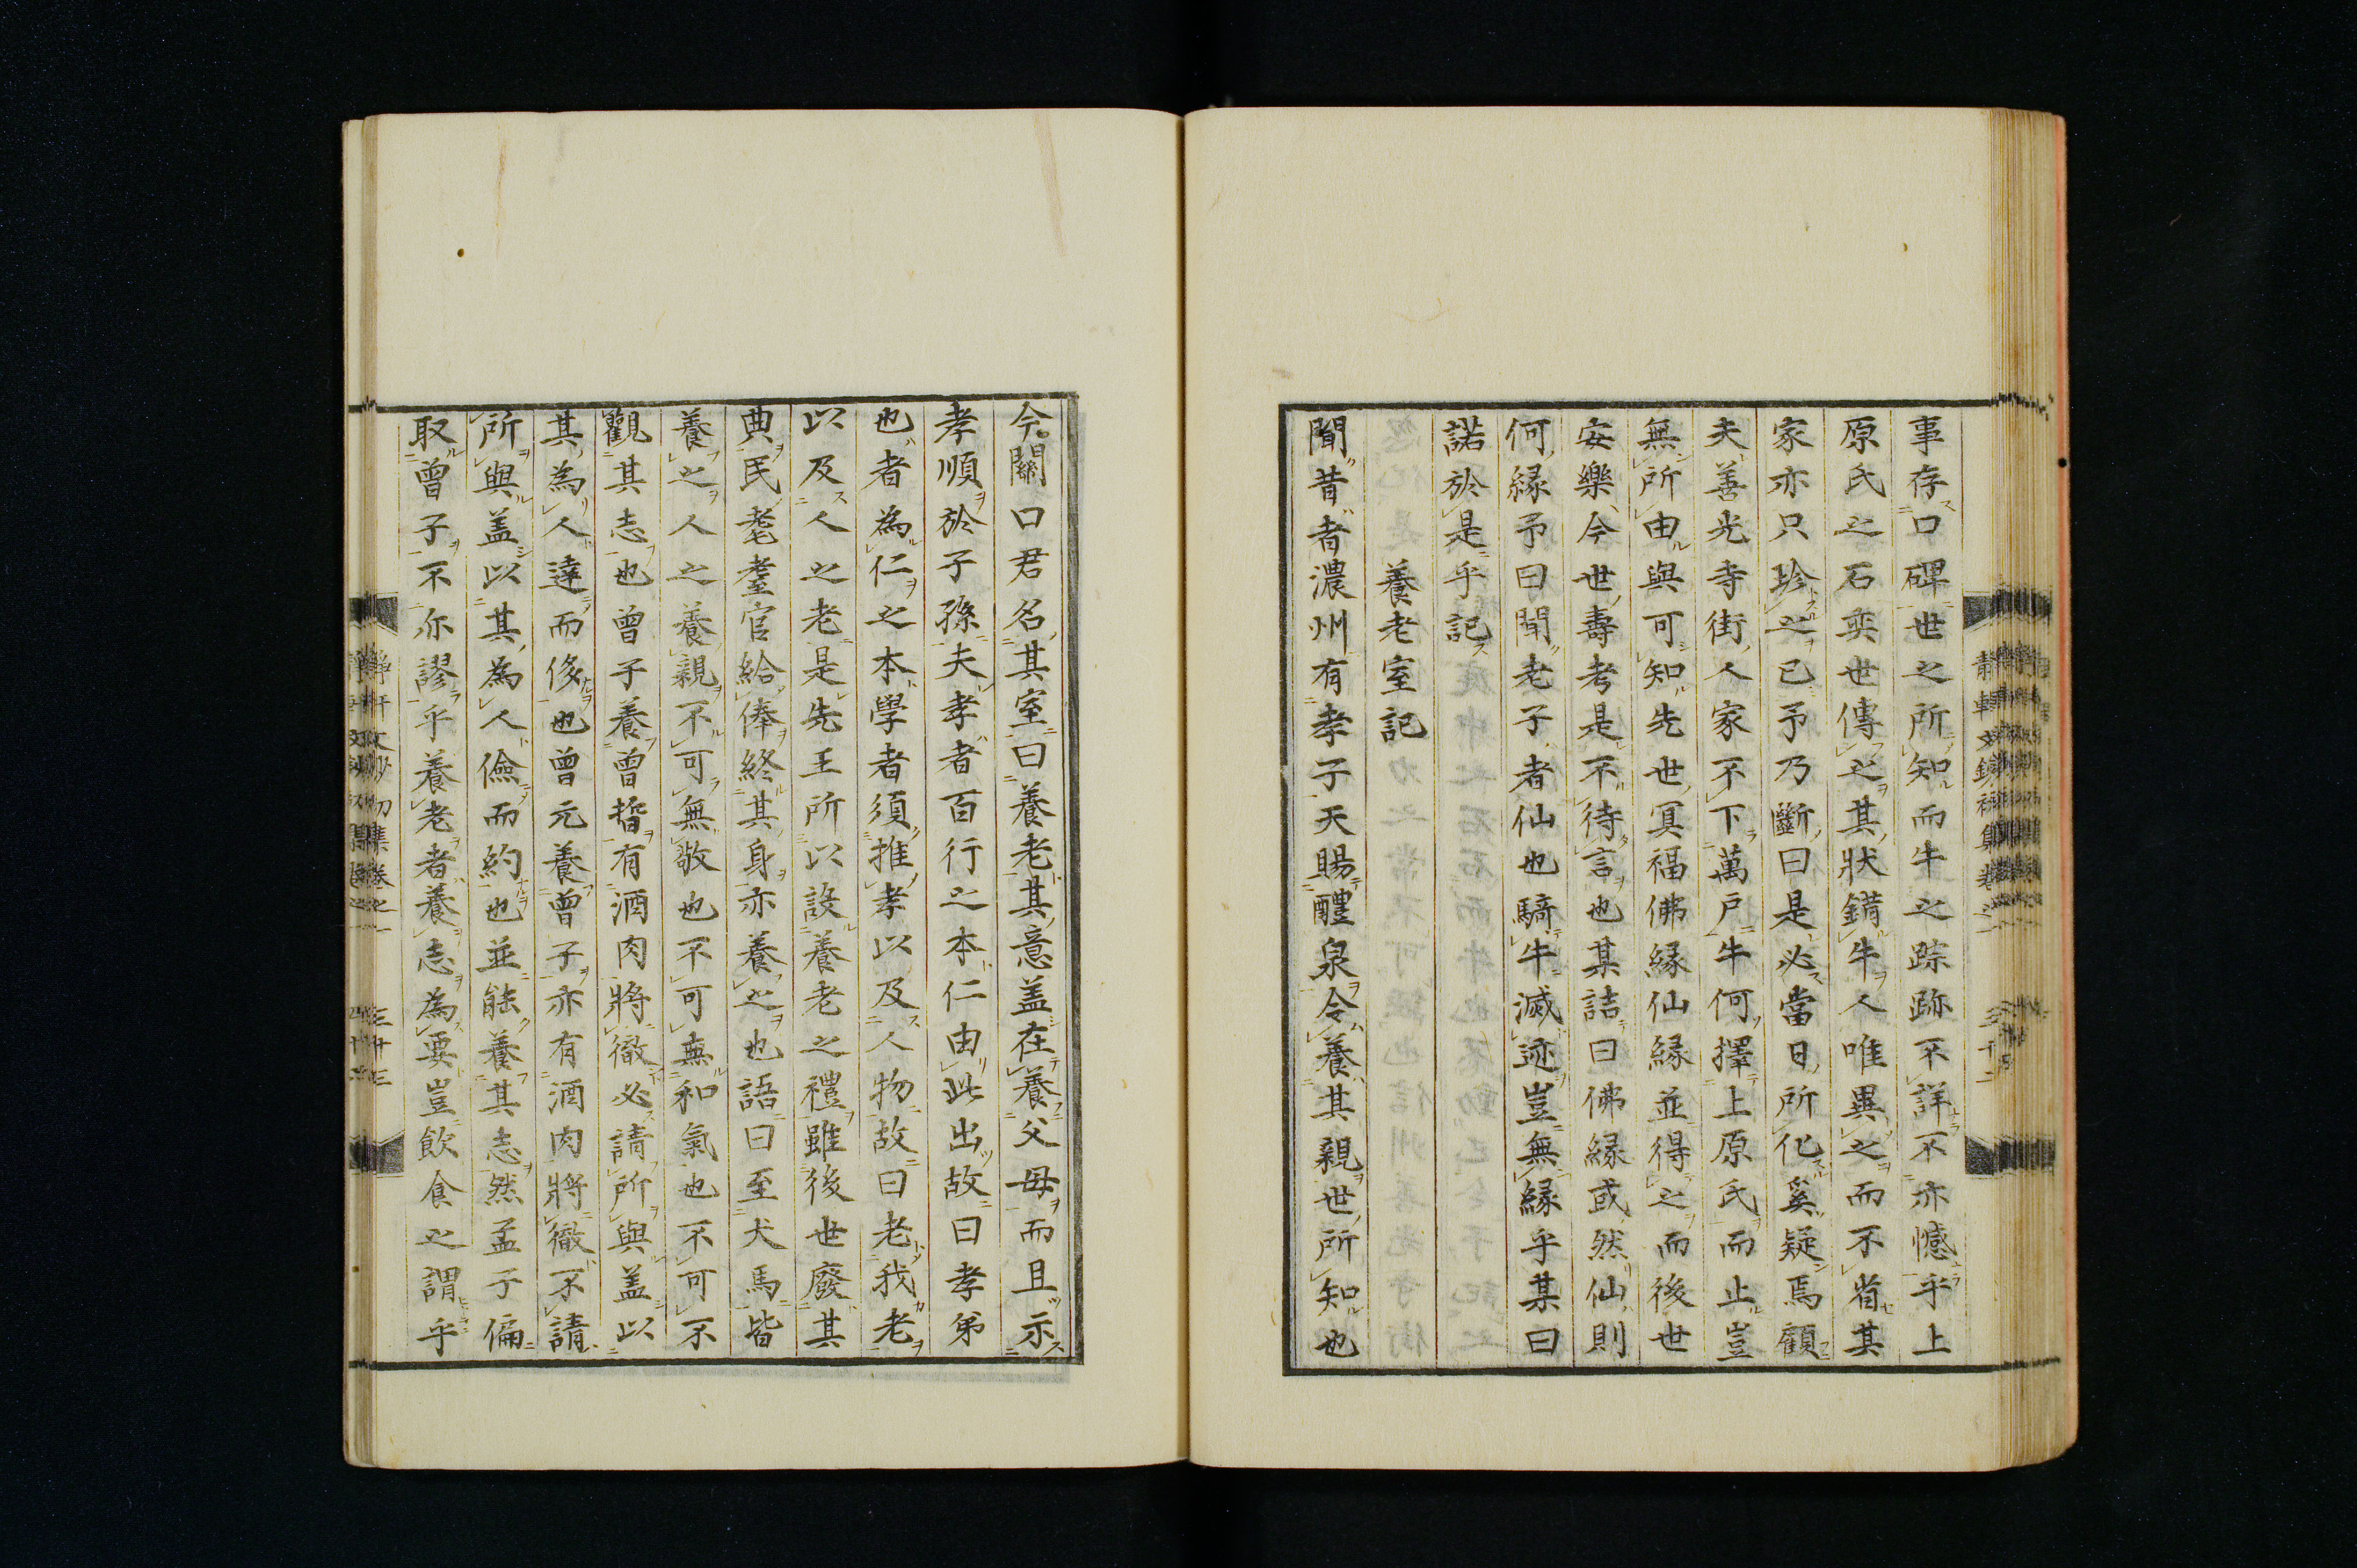 事存口碑世之所知而牛之踪跡不詳不亦憾乎上
原氏之石奕世傳之其狀錯牛人唯異之而不省其
家亦只珍之已予乃斷曰是必當日所化奚疑焉顧
夫善光寺街人家不下萬戶牛何擇上原氏而止豈
無所由與可知先世冥福佛緣仙緣並得之而後世
安樂今世壽考是不待言也某詰曰佛緣或然仙則
何緣予曰聞老子者仙也騎牛滅迹豈無緣乎某曰
諾於是乎記
養老室記
聞昔者濃州有孝子天賜醴泉令養其親世所知也
今關口君名其室曰養老其意盖在養父母而且示
孝順於子孫夫孝者百行之本仁由此出故曰孝弟
也者為仁之本學者須推孝以及人物故曰老我老
以及人之老是先王所以設養老之禮雖後世廢其
典民耄耋官給俸終其身亦養之也語曰至犬馬皆
養之人之養親不可無敬也不可無和氣也不可不
觀其志也曾子養曾晳有酒肉將徹必請所與盖以
其為人達而侈也曾元養曾子亦有酒肉將徹不請
所與盖以其為人儉而約也並能養其志然孟子偏
取曾子不亦謬乎養老者養志為要豈飲食之謂乎